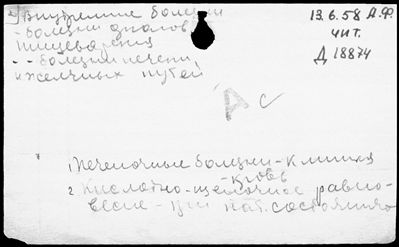 Внутренние болезни
- болезни органов
пищеварения
- - болезни печени
и желчных путей
13.6.58 А.Ф.
чит.
Д 18874
А с
1. Печеночные болезни - клиника
- кровь
2. Кислотно-щелочное равно-
весие - при пат. состояниях